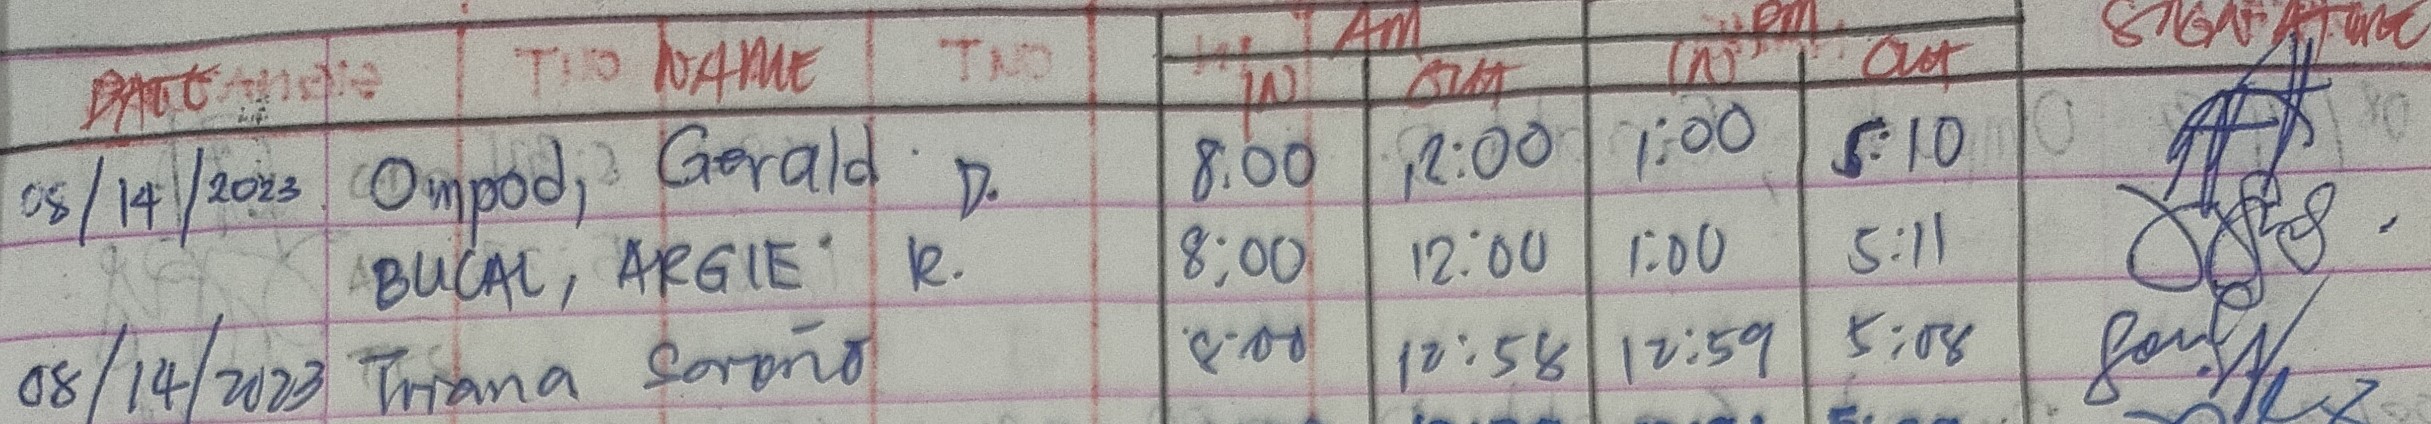 AM PM SIGNATURE
DATE NAME IN OUT IN OUT
08/14/2023 Ompod, Gerald D. 8:00 12:00 1:00 5:10
BUCAL, ARGIE R. 8:00 12:00 1:00 5:11
08/14/2023 Triana Soreño 8:00 12:58 12:59 5:08